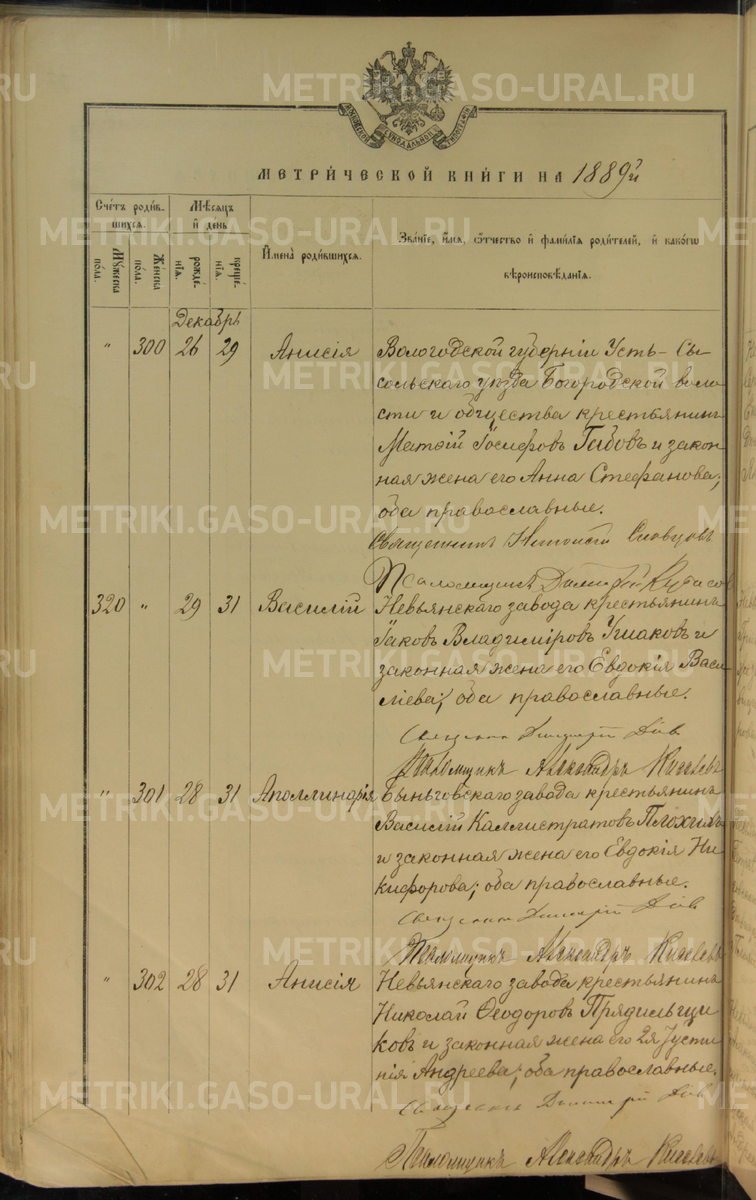 METRIKI.GASO-URAL.RU
МОСКОВСКОЙ СѴНОДАЛЬНЫЙ ТИПОГРАФІИ
МЕТРИ́ЧЕСКОЙ КНИ́ГИ НА 1889й
Счéтъ роди́в-
шихся.
Мѣ́сяцъ
и҆ день
Мужеска
по́ла.
Женска
по́ла.
рожде́-
нія.
креще́-
нія.
И҆мена̀ роди́вшихся.
Зва́ніе, и҆́мя, ѻ҆́тчество и҆ фами́лїя роди́телей, и҆ како́гѡ
вѣроисповѣ́данія.
Декабрь
" 300 26 29 Анисія Вологодской губерніи Усть-Сы-
сольскаго уѣзда Богородской воло
сти и общества крестьянинъ
Матѳій Іосифовъ Габовъ и закон
ная жена его Анна Стефанова;
оба православные.
Священникъ Словцовъ
Псаломщикъ
320 " 29 31 Василій Невьянскаго завода крестьянинъ
Іаковъ Владиміровъ Ушаковъ и
законная жена его Евдокія Васи
ліева; оба православные.
Священникъ Димитрій
Псаломщикъ Александръ Киселевъ
" 301 28 31 Аполлинарія Быньговскаго завода крестьянинъ
Василій Каллистратовъ Плохихъ
и законная жена его Евдокія Ни
кифорова; оба православные.
Священникъ Димитрій
Псаломщикъ Александръ Киселевъ
" 302 28 31 Анисія Невьянскаго завода крестьянинъ
Николай Ѳеодоровъ Прядильщи
ковъ и законная жена его 2я Іусти
нія Андреева; оба православные.
Священникъ Димитрій
Псаломщикъ Александръ Киселевъ